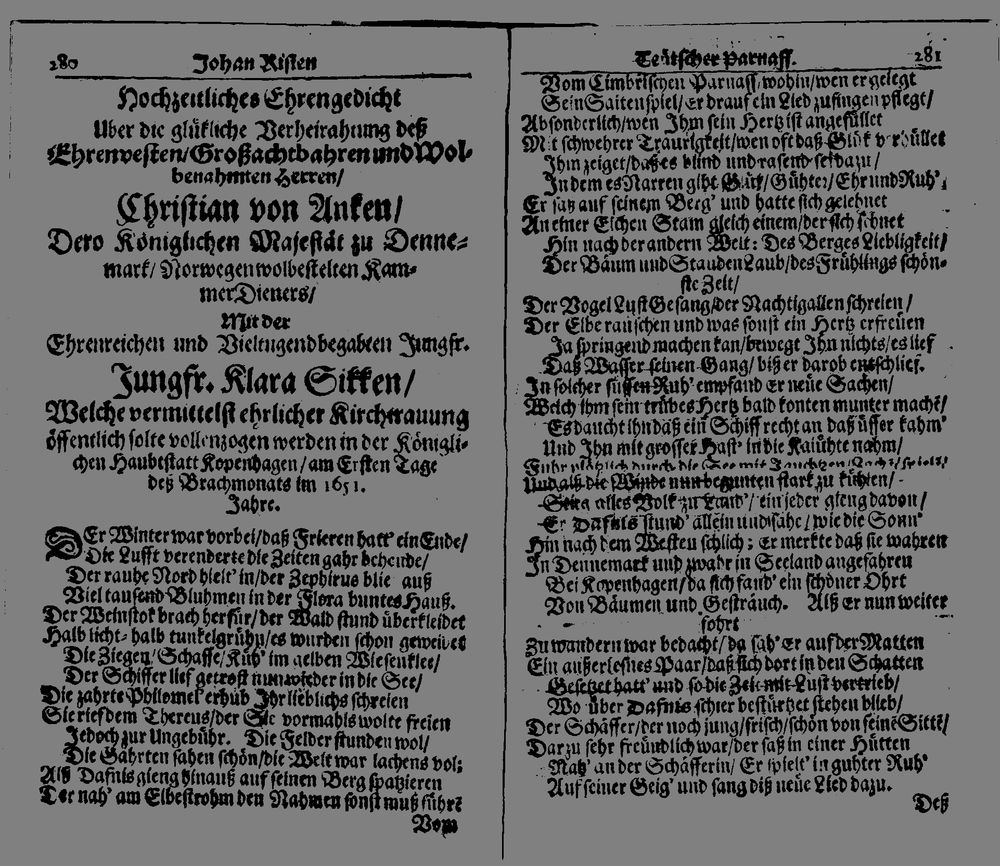 280 Johan Risten
Hochzeitliches Ehrengedicht
Uber die glükliche Verheirahtung deß
Ehrenvesten/Großachtbahren und Wol-
benahmten Herren/
Christian von Anken/
Dero Königlichen Majestät zu Denne-
mark/Norwegen wolbestelten Kam-
merDieners/
Mit der
Ehrenreichen und Vieltugendbegabten Jungfr.
Jungfr. Klara Sikken/
Welche vermittelst ehrlicher Kirchtrauung
öffentlich solte vollenzogen werden in der Königli-
chen Haubtstatt Kopenhagen/am Ersten Tage
deß Brachmonats im 1651.
Jahre.
DEr Winter war vorbei/daß Frieren hatt' ein Ende/
Die Lufft verenderte die Zeiten gahr behende/
Der rauhe Nord hielt' in/der Zephirus blies auß
Viel tausend Bluhmen in der Flora buntes Hauß.
Der Weinstok brach herfür/der Wald stund überkleidet
Halb licht- halb tunkelgrühn/es wurden schon geweidet
Die Ziegen/Schaffe/Küh' im gelben Wiesenklee/
Der Schiffer lief getrost nun wieder in die See/
Die zahrte Philomel' erhub Jhr lieblichs schreien
Sie rief dem Thereus/der Sie vormahls wolte freien
Jedoch zur Ungebühr. Die Felder stunden wol/
Die Gahrten sahen schön/die Welt war lachens vol;
Alß Dafnis gieng hinauß auf seinen Berg spatzieren
Der nah' am Elbestrohm den Nahmen sonst muß führē
Vom
Teütscher Parnass. 281
Vom Cimbrischen Parnass/wohin/wen er gelegt
Sein Saitenspiel/er drauf ein Lied zusingen pflegt/
Absonderlich/wen Jhm sein Hertz ist angefüllet
Mit schwehrer Traurigkeit/wen oft daß Glük verhüllet
Jhm zeiget/daß es blind und rasend sei dazu/
Jn dem es Narren gibt Glük/Gühter/Ehr und Ruh'.
Er saß auf seinem Berg' und hatte sich gelehnet
An einer Eichen Stam gleich einem/der sich sehnet
Hin nach der andern Welt: Des Berges Liebligkeit/
Der Bäum und Stauden Laub/des Frühlings schön-
ste Zeit/
Der Vogel Lust Gesang/der Nachtigallen schreien/
Der Elbe rauschen und was sonst ein Hertz erfreuen
Ja springend machen kan/bewegt Jhn nichts/es lief
Daß Wasser seinen Gang/biß er darob entschlief.
Jn solcher süssen Ruh' empfand er neue Sachen/
Welch ihm sein trübes Hertz bald konten munter machē/
Es daucht ihn daß ein Schiff recht an daß üffer kahm'
Und Jhn mit grosser Hast' in die Kajühte nahm/
Fuhr plötzlich durch die See mit
Und alß die Winde nun begunten stark zu kühlen/
Steig alles Volk zu Land'/ein jeder gieng davon/
Er Dafnis stund' allein und sahe/wie die Sonn'
Hin nach dem Westen schlich; er merkte daß sie wahren
Jn Dennemark und zwahr in Seeland angefahren
Bei Kopenhagen/da sich fand' ein schöner Ohrt
Von Bäumen und Gesträuch. Alß er nun weiter
fohrt
Zu wandern war bedacht/da sah' Er auf der Matten
Ein außerlesnes Paar/daß sich dort in den Schatten
Gesetzet hatt' und so die Zeit mit Lust vertrieb/
Wo über Dafnis schier bestürtzet stehen blieb/
Der Schäffer/der noch jung/frisch/schön von seinē Sittē/
Darzu sehr freündlich war/der saß in einer Hütten
Näh' an der Schäfferin/Er spielt' in guhter Ruh'
Auf seiner Geig' und sang diß neue Lied dazu.
Deß